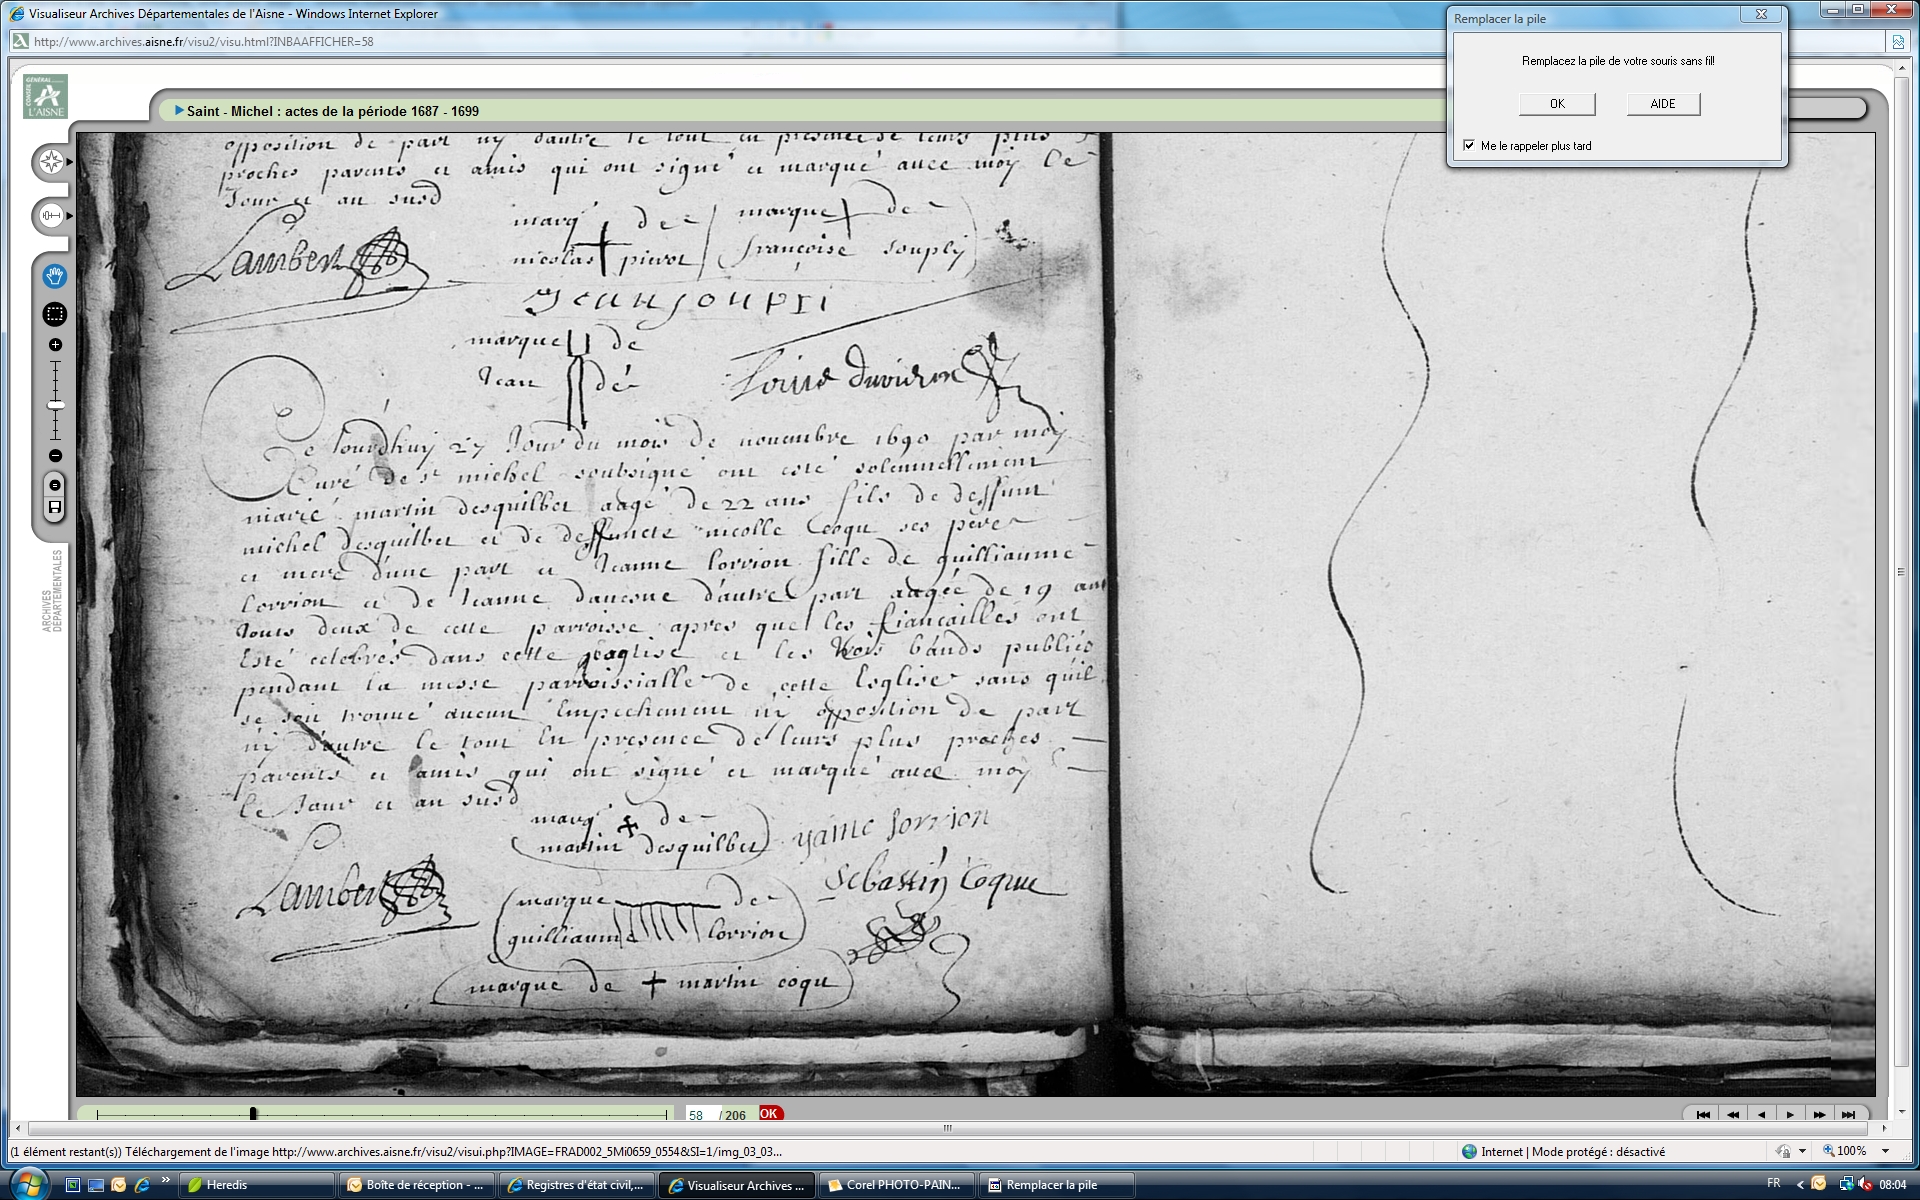 Visualiseur Archives Départementales de l'Aisne - Windows Internet Explorer
http://www.archives.aisne.fr/visu2/visu.html?INBAAFFICHER=58
Remplacer la pile
Remplacez la pile de votre souris sans fil!
OK AIDE
Me le rappeler plus tard
CONSEIL GÉNÉRAL
L'AISNE
Saint - Michel : actes de la période 1687 - 1699
opposition de part ny dautre le tout en presence de leurs plus
proches parents et amis qui ont signé et marqué avec moy le
Jour et an susd
marq de marque de
Lambert nicolas pierot françoise souply
Jean soupli
marque de
Jean dé Louis
Ce Jourdhuy 27 Jour du mois de novembre 1690 par moy
Curé de st michel soubsigné ont esté solemnellement
marié martin desquilbet aagé de 22 ans fils de deffunt
michel desquilbet et de deffuncte nicolle Coqu ses pere
et mere d'une part et Jeanne lorrion fille de guilliaume
lorrion et de Jeanne d'autre part aagée de 19 ans
Touts deux de cette parroisse apres que les fiancailles ont
Esté celebrés dans cette Esglise et les trois bands publiés
pendant la messe parroissialle de cette Esglise sans quil
se soit trouvé aucun Empechement ny opposition de part
ny d'autre le tout En presence de leurs plus proches
parents et amis qui ont signé et marqué avec moy
le Jour et an susd
marq de
martin desquilbet yanne lorrion
Lambert Sebastin Coque
marque de
guilliaume lorrion
marque de martin coqu
ARCHIVES
DEPARTEMENTALES
58 / 206 OK
(1 élément restant(s)) Téléchargement de l'image http://www.archives.aisne.fr/visu2/visui.php?IMAGE=FRAD002_5Mi0659_0554&SI=1/img_03_03...
Internet | Mode protégé : désactivé
100%
Heredis
Boîte de réception - ...
Registres d'état civil,...
Visualiseur Archives ...
Corel PHOTO-PAIN...
Remplacer la pile
FR
08:04